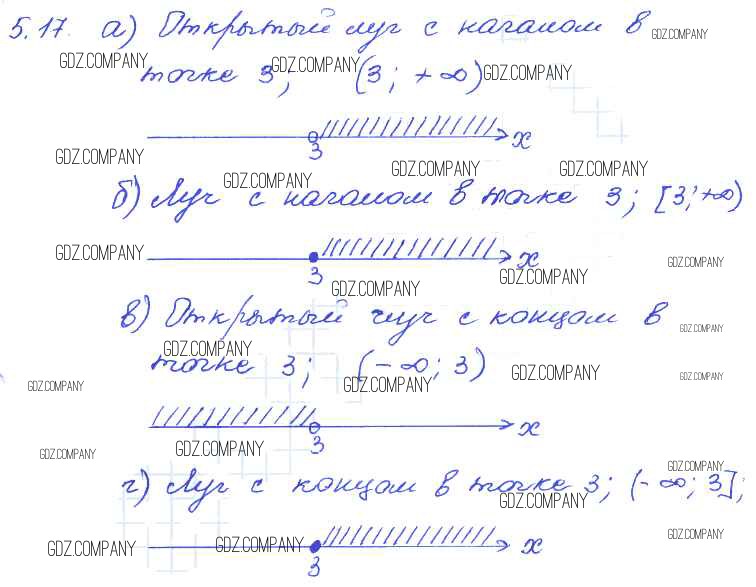 5.17. а) Открытый луч с началом в
GDZ.COMPANY
GDZ.COMPANY
точке 3; (3; +∞)
GDZ.COMPANY
GDZ.COMPANY
3 x
GDZ.COMPANY
GDZ.COMPANY
GDZ.COMPANY
GDZ.COMPANY
б) Луч с началом в точке 3; [3; +∞)
GDZ.COMPANY
3 x
GDZ.COMPANY
GDZ.COMPANY
GDZ.COMPANY
в) Открытый луч с концом в
GDZ.COMPANY
GDZ.COMPANY
точке 3; (-∞; 3)
GDZ.COMPANY
GDZ.COMPANY
GDZ.COMPANY
GDZ.COMPANY
3 x
GDZ.COMPANY
GDZ.COMPANY
GDZ.COMPANY
г) Луч с концом в точке 3; (-∞; 3];
GDZ.COMPANY
GDZ.COMPANY
GDZ.COMPANY
GDZ.COMPANY
3 x